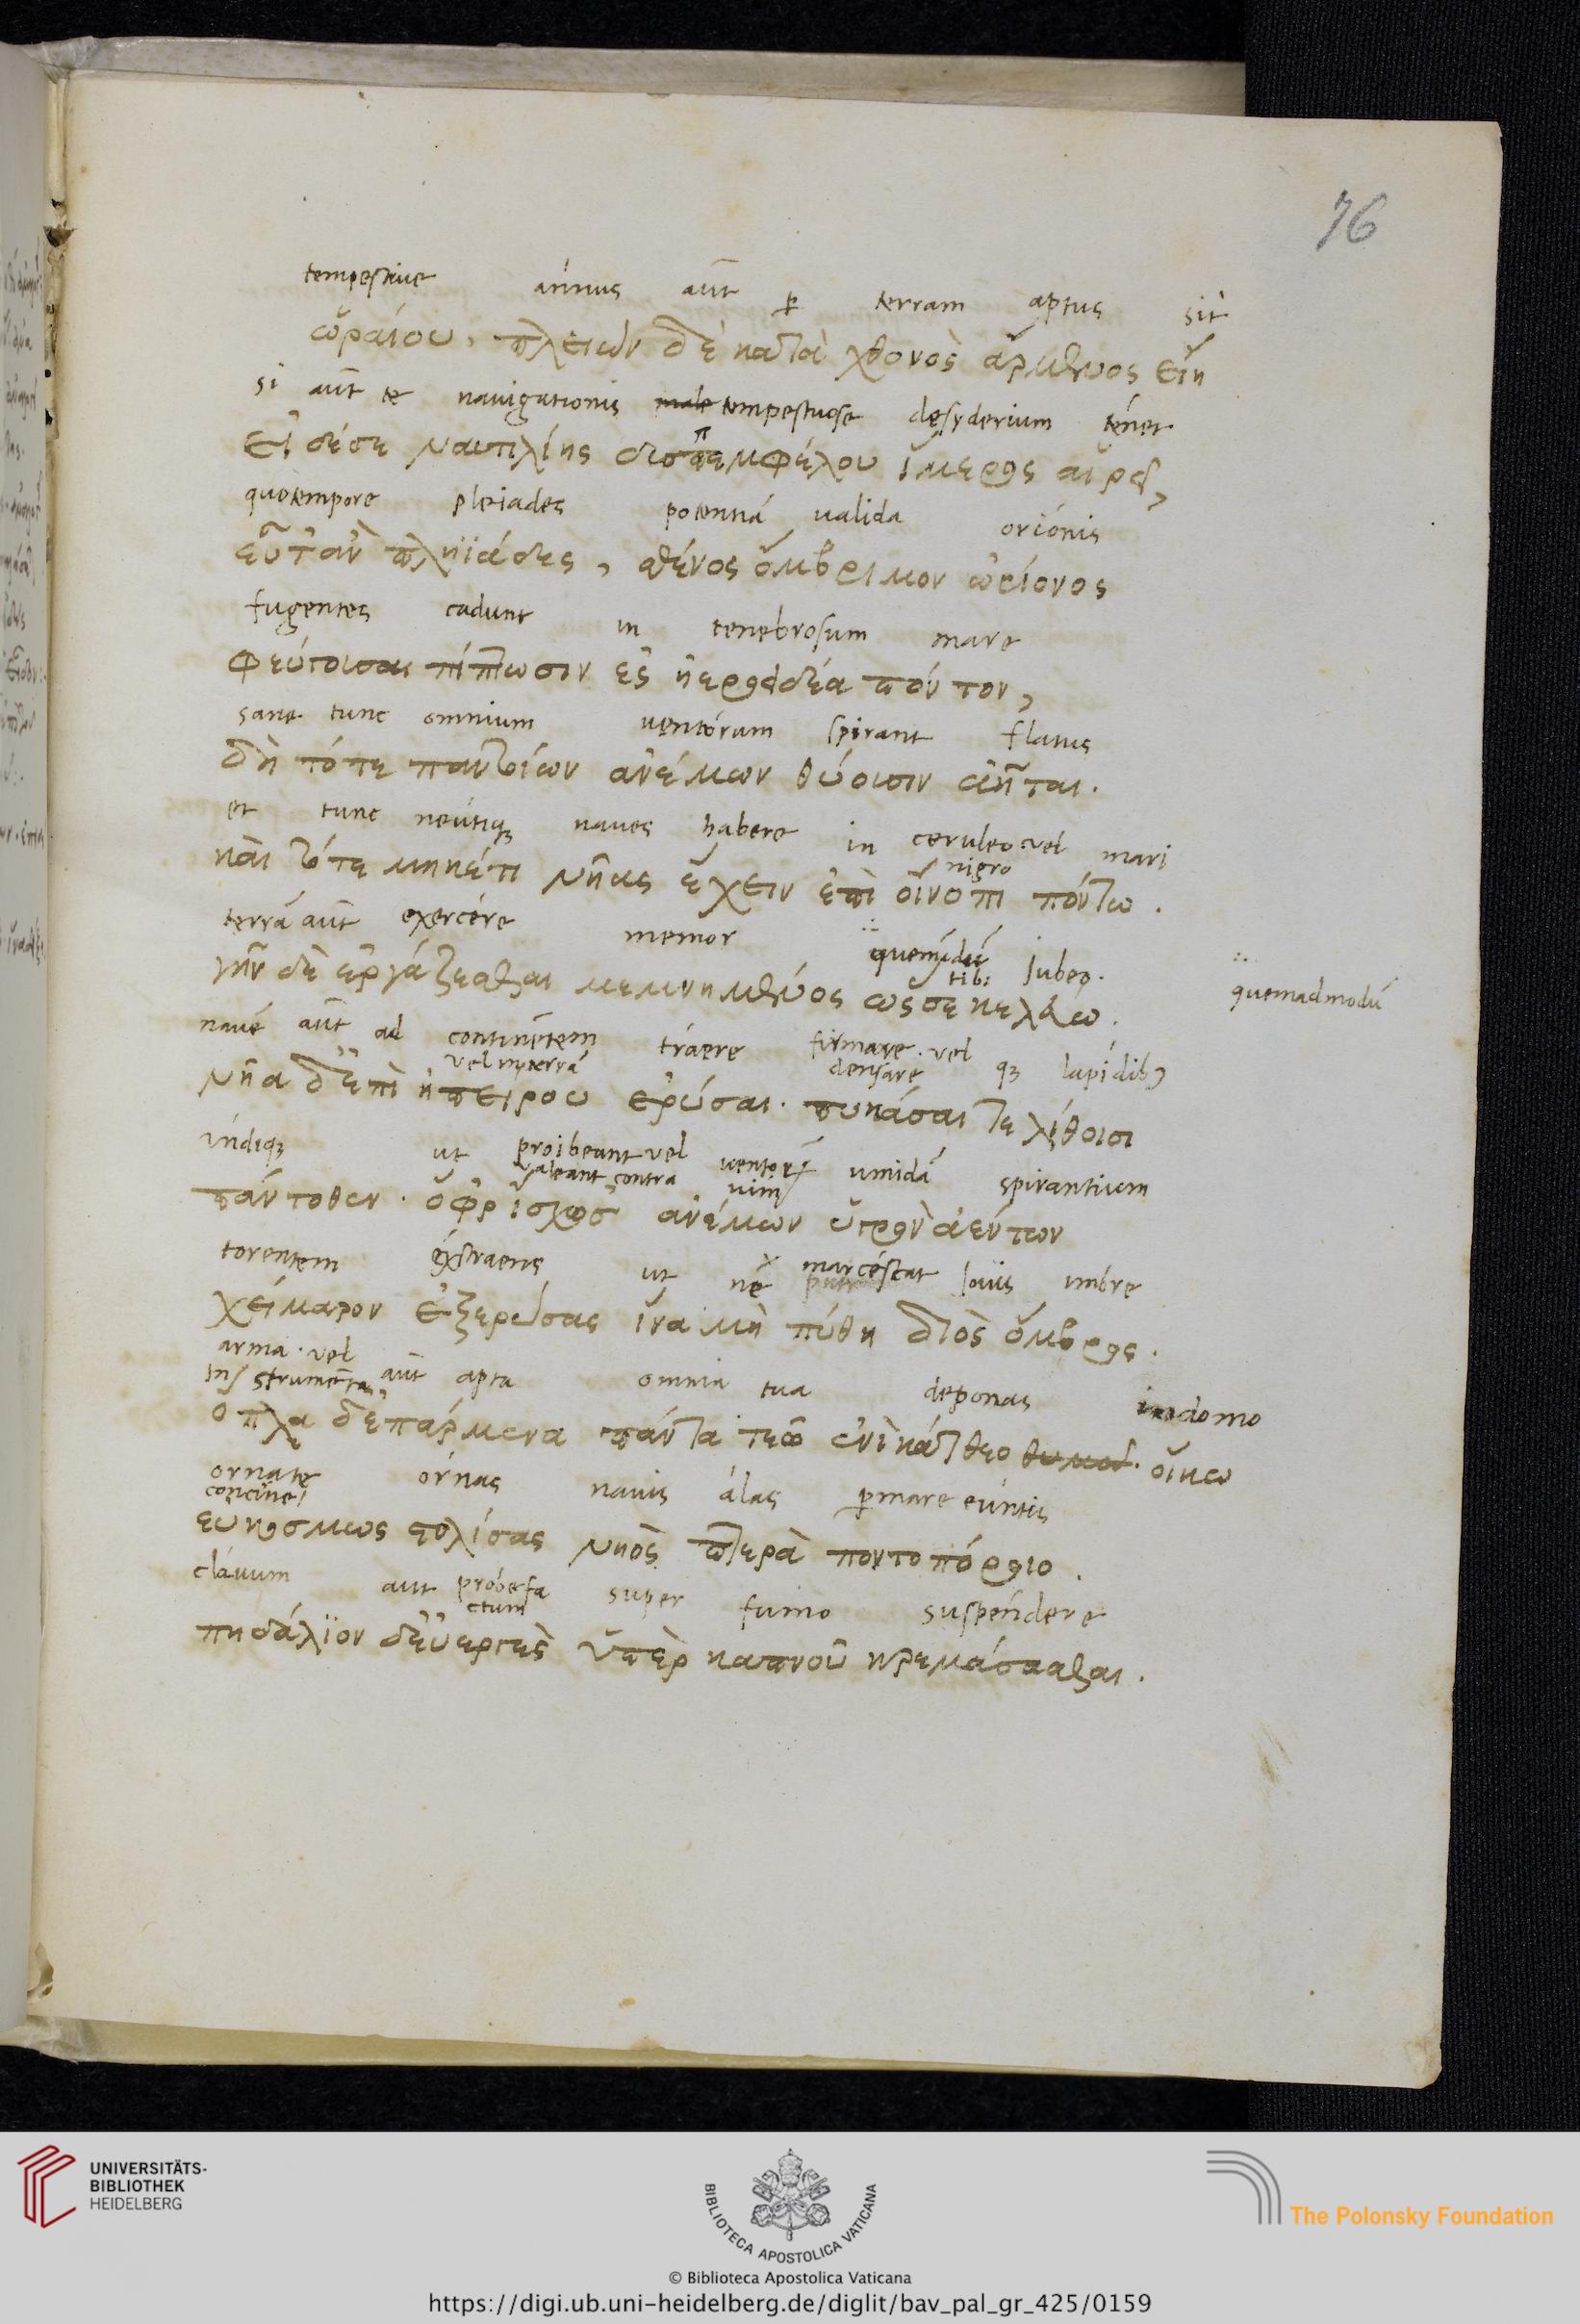 76
tempestive annus aut̄ p̄ terram aptus sit
ὡραίου, πλειὼν δὲ κατὰ χθονὸς ἄρμενος εἴη
si aut̄ te navigationis male tempestuose desyderium tenet
εἰ δέ σε ναυτιλίης δυσπεμφέλου ἵμερος αἱρεῖ,
quotempore pleiades potentiā valida orionis
εὖτ' ἂν πληϊάδες, σθένος ὄμβριμον ὠρίονος
fugentes cadunt in tenebrosum mare
φεύγουσαι πίπτωσιν ἐς ἠεροειδέα πόντον,
sane tunc omnium ventorum spirant flatus
δὴ τότε παντοίων ἀνέμων θύουσιν ἀῆται.
et tunc neutiqꝫ naves habere in ceruleo vel mari
nigro
καὶ τότε μηκέτι νῆας ἔχειν ἐπὶ οἴνοπι πόντω.
terrā aut̄ exercere memor quemādū jubeo.
tibi
quemadmodū
γῆν δὲ ἐργάζεσθαι μεμνημένος ὥς σε κελεύω.
navē aut̄ ad continētem traere firmare. vel qꝫ lapidibꝰ
vel in terrā densare
νῆα δ' ἐπὶ ἠπείρου ἐρύσαι. πυκάσαι τε λίθοισι
undiqꝫ ut proibeant vel ventorū umidā spirantium
valeant contra vim
πάντοθεν. ὄφρ' ἴσχωσ' ἀνέμων ὑγρὸν ἀέντων
torentem extraens ut nē marcescat Iovis imbre
χείμαρον ἐξερύσας ἵνα μὴ πύθη διὸς ὄμβρος.
arma. vel
instrumēta aut̄ apta omnia tua deponas in domo
ὅπλα δ' ἐπάρμενα πάντα τεῷ ἐνὶ κάτθεο οἴκω
ornate ornas navis alas p̄mare euntis
concine
εὐκόσμως στολίσας νηὸς πτερὰ ποντοπόροιο.
clavum aut probe fa super fumo suspendere
ctum
πηδάλϊον δ' εὐεργὲς ὑπὲρ καπνοῦ κρεμάσασθαι.
UNIVERSITÄTS-
BIBLIOTHEK
HEIDELBERG
BIBLIOTECA APOSTOLICA VATICANA
The Polonsky Foundation
© Biblioteca Apostolica Vaticana
https://digi.ub.uni-heidelberg.de/diglit/bav_pal_gr_425/0159